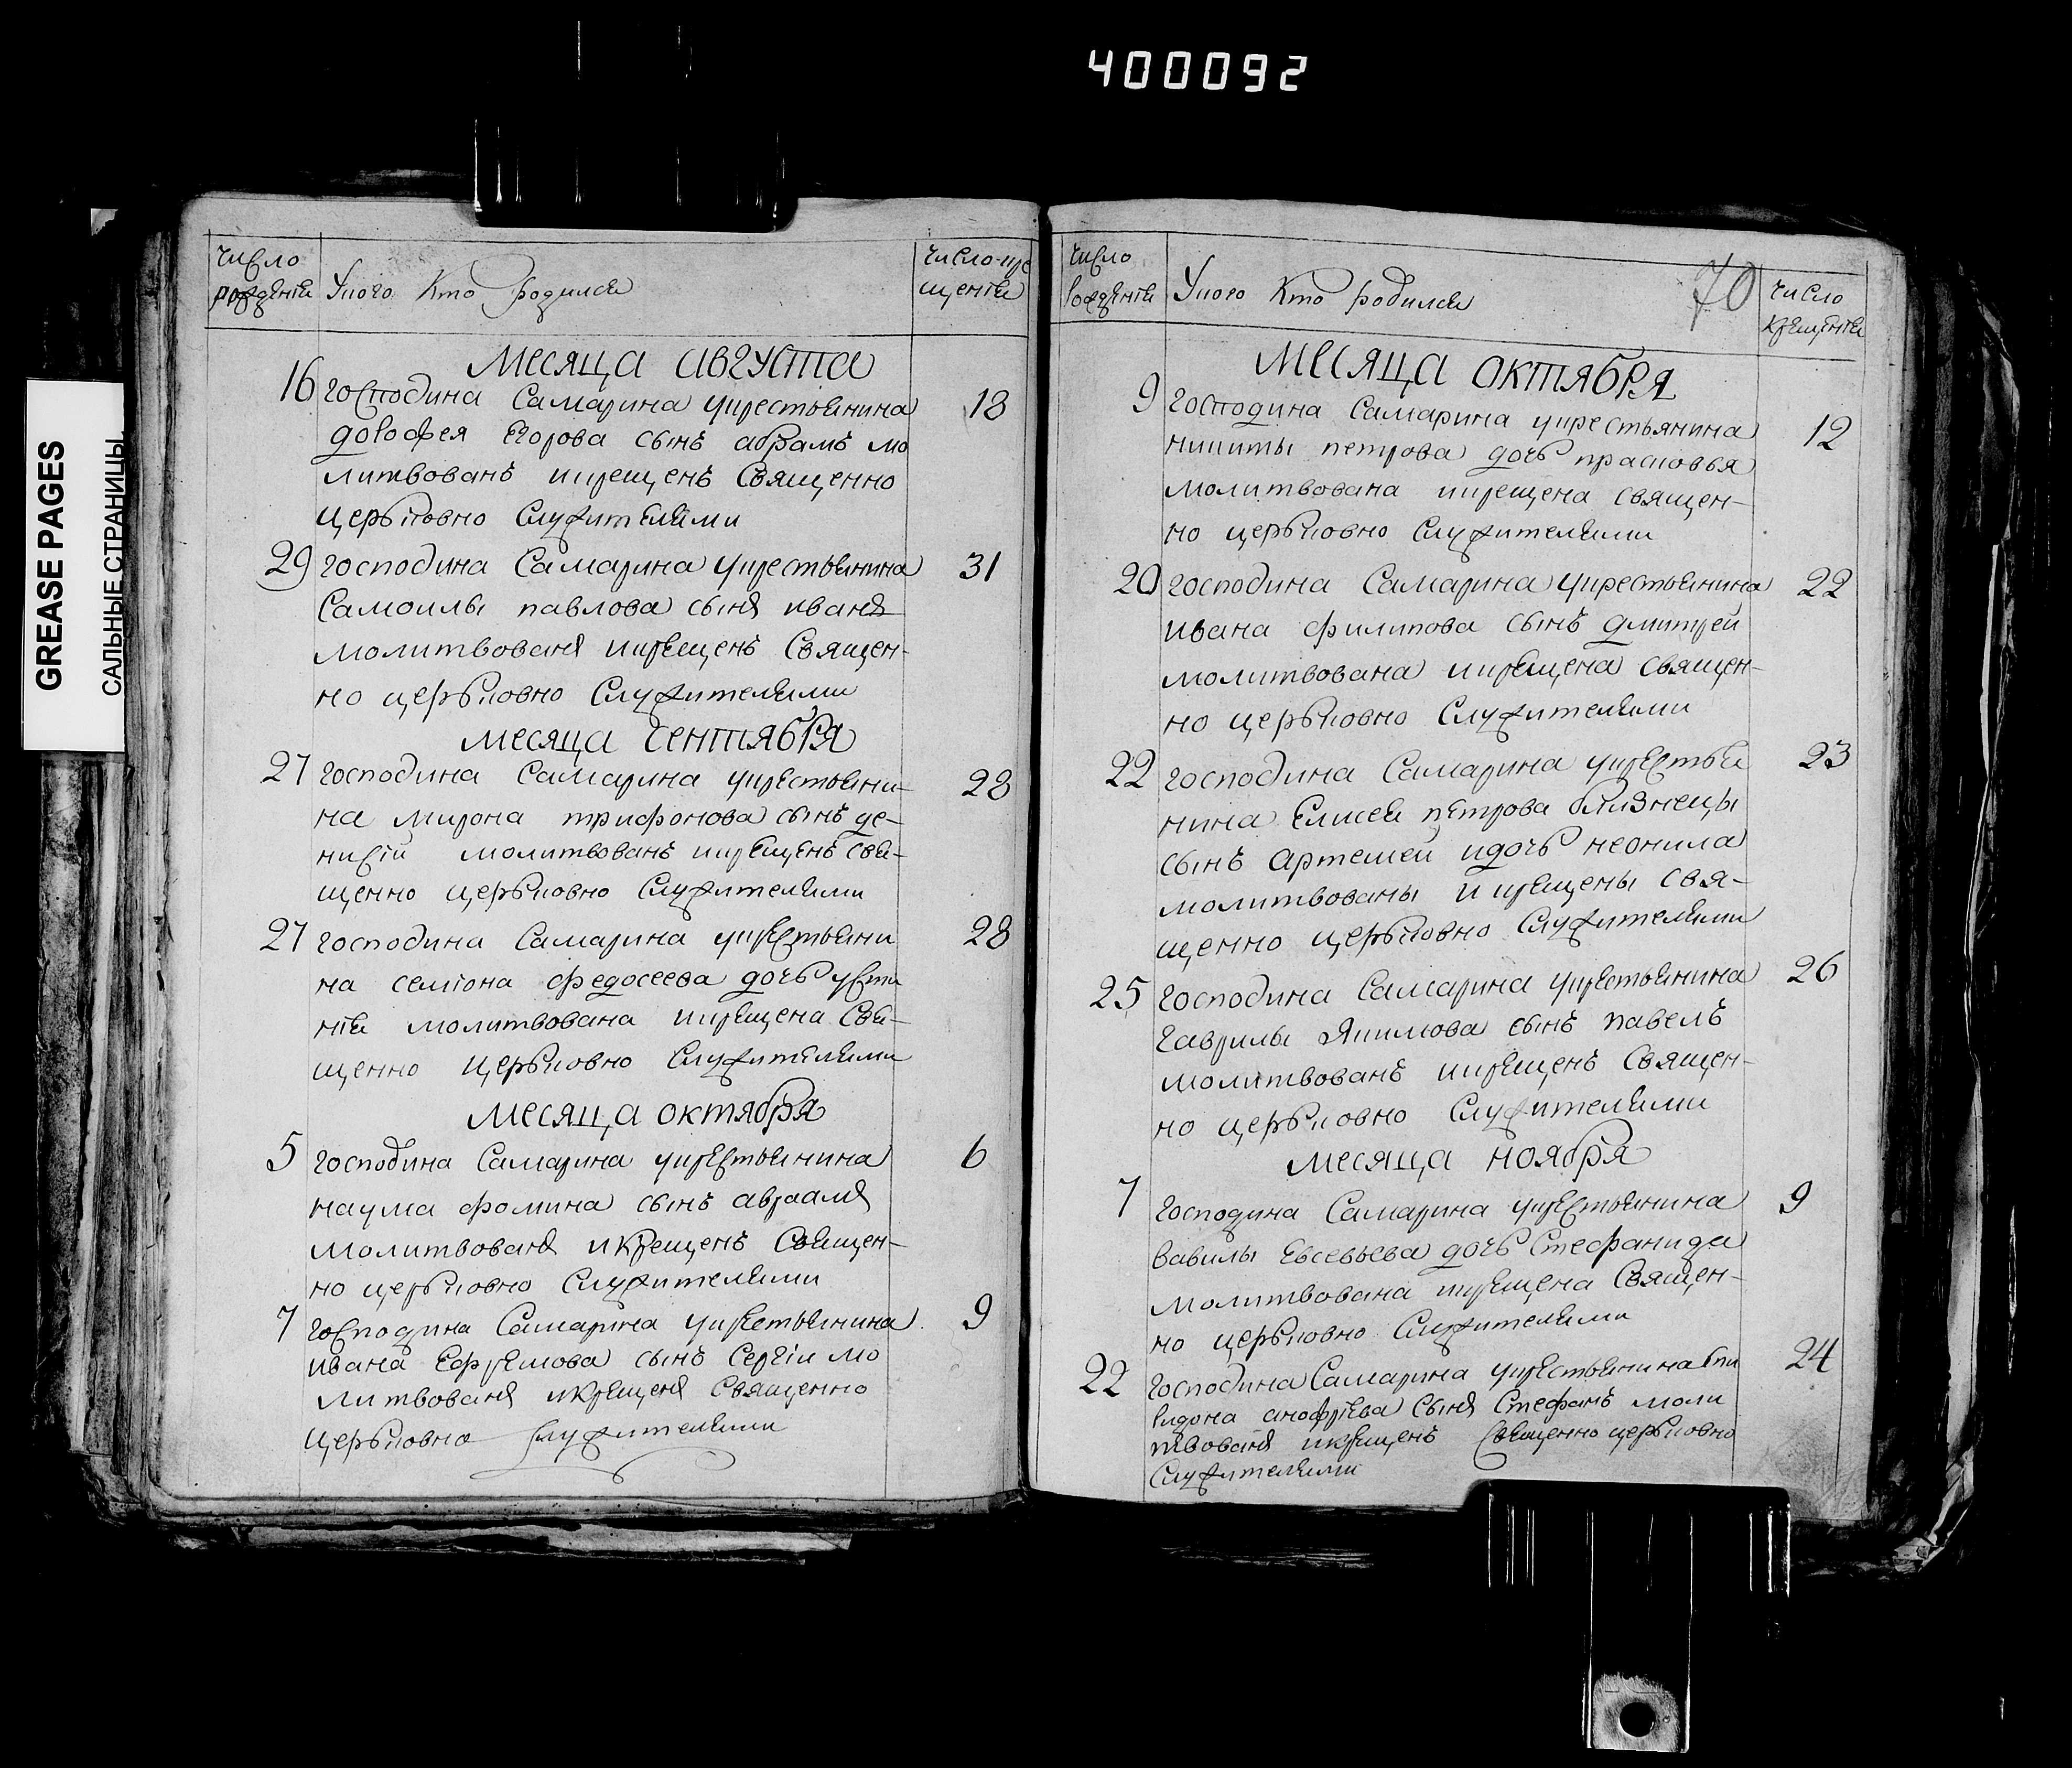 400092
GREASE PAGES
САЛЬНЫЕ СТРАНИЦЫ
число рожденїя
У кого кто родился
число кре
щенїя
месяца августа
16 господина Самарина укрестьянина 18
дорофея Егорова сынъ абрамъ мо
литвованъ икрещенъ Священно
церьковно Служителями
29 господина Самарина укрестьянина 31
Самоилы павлова сынъ иванъ
молитвованъ икрещенъ Священ-
но церьковно Служителями
месяца сентября
27 господина Самарина укрестьяни- 28
на мирона трифонова сынъ де-
нисїй молитвованъ икрещенъ свя-
щенно церьковно Служителями
27 господина Самарина укрестьяни 28
на семїона федосеева дочь усти
нїя молитвована икрещена Свя-
щенно церьковно Служителями
месяца октября
5 господина Самарина укрестьянина 6
наума фомина сынъ авраамъ
молитвованъ икрещенъ Священ-
но церьковно Служителями
7 господина Самарина укрестьянина 9
ивана Ефремова сынъ Сергїи мо
литвованъ икрещенъ Священно
Церьковно Служителями
число рожденїя
У кого кто родился
70
число
крещенїя
месяца октября
9 господина Самарина укрестьянина 12
никиты петрова дочь прасковья
молитвована икрещена священ-
но церьковно Служителями
20 господина Самарина укрестьянина 22
ивана филипова сынъ дмитрей
молитвована икрещена священ-
но церьковно Служителями
22 господина Самарина укрестья 23
нина Елисея петрова близнецы
сынъ артемей идочь неонила
молитвованы и крещены свя-
щенно церьковно Служителями
25 господина Самарина укрестьянина 26
гаврилы Якимова сынъ павелъ
молитвованъ икрещенъ Священ-
но церьковно Служителями
месяца ноября
7 господина Самарина укрестьянина 9
вавилы Евсевьева дочь Стефанида
молитвована икрещена Священ-
но церьковно Служителями
22 господина Самарина укрестьянина спи 24
ридона анофрїева сынъ Стефанъ моли
твованъ икрещенъ Священно церьковно
Служителями